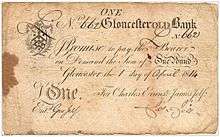 ONE
No. 662 Gloucester Old Bank
No 662
I Promise to pay the Bearer
on Demand the Sum of One Pound
Gloucester the 1 day of April 1814
£ One For Charles Evans James Jelf
Entd